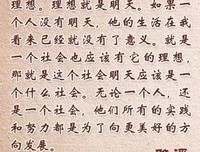 理想。理想就是明天。如果一
个人没有明天，他的生活在我
看来已经就没有了意义。就是
一个社会也应该有它的理想，
那就是这个社会明天应该是一
个什么社会。无论一个人，还
是一个社会，他们所有的实践
和努力都是为了向更美好的方
向发展。